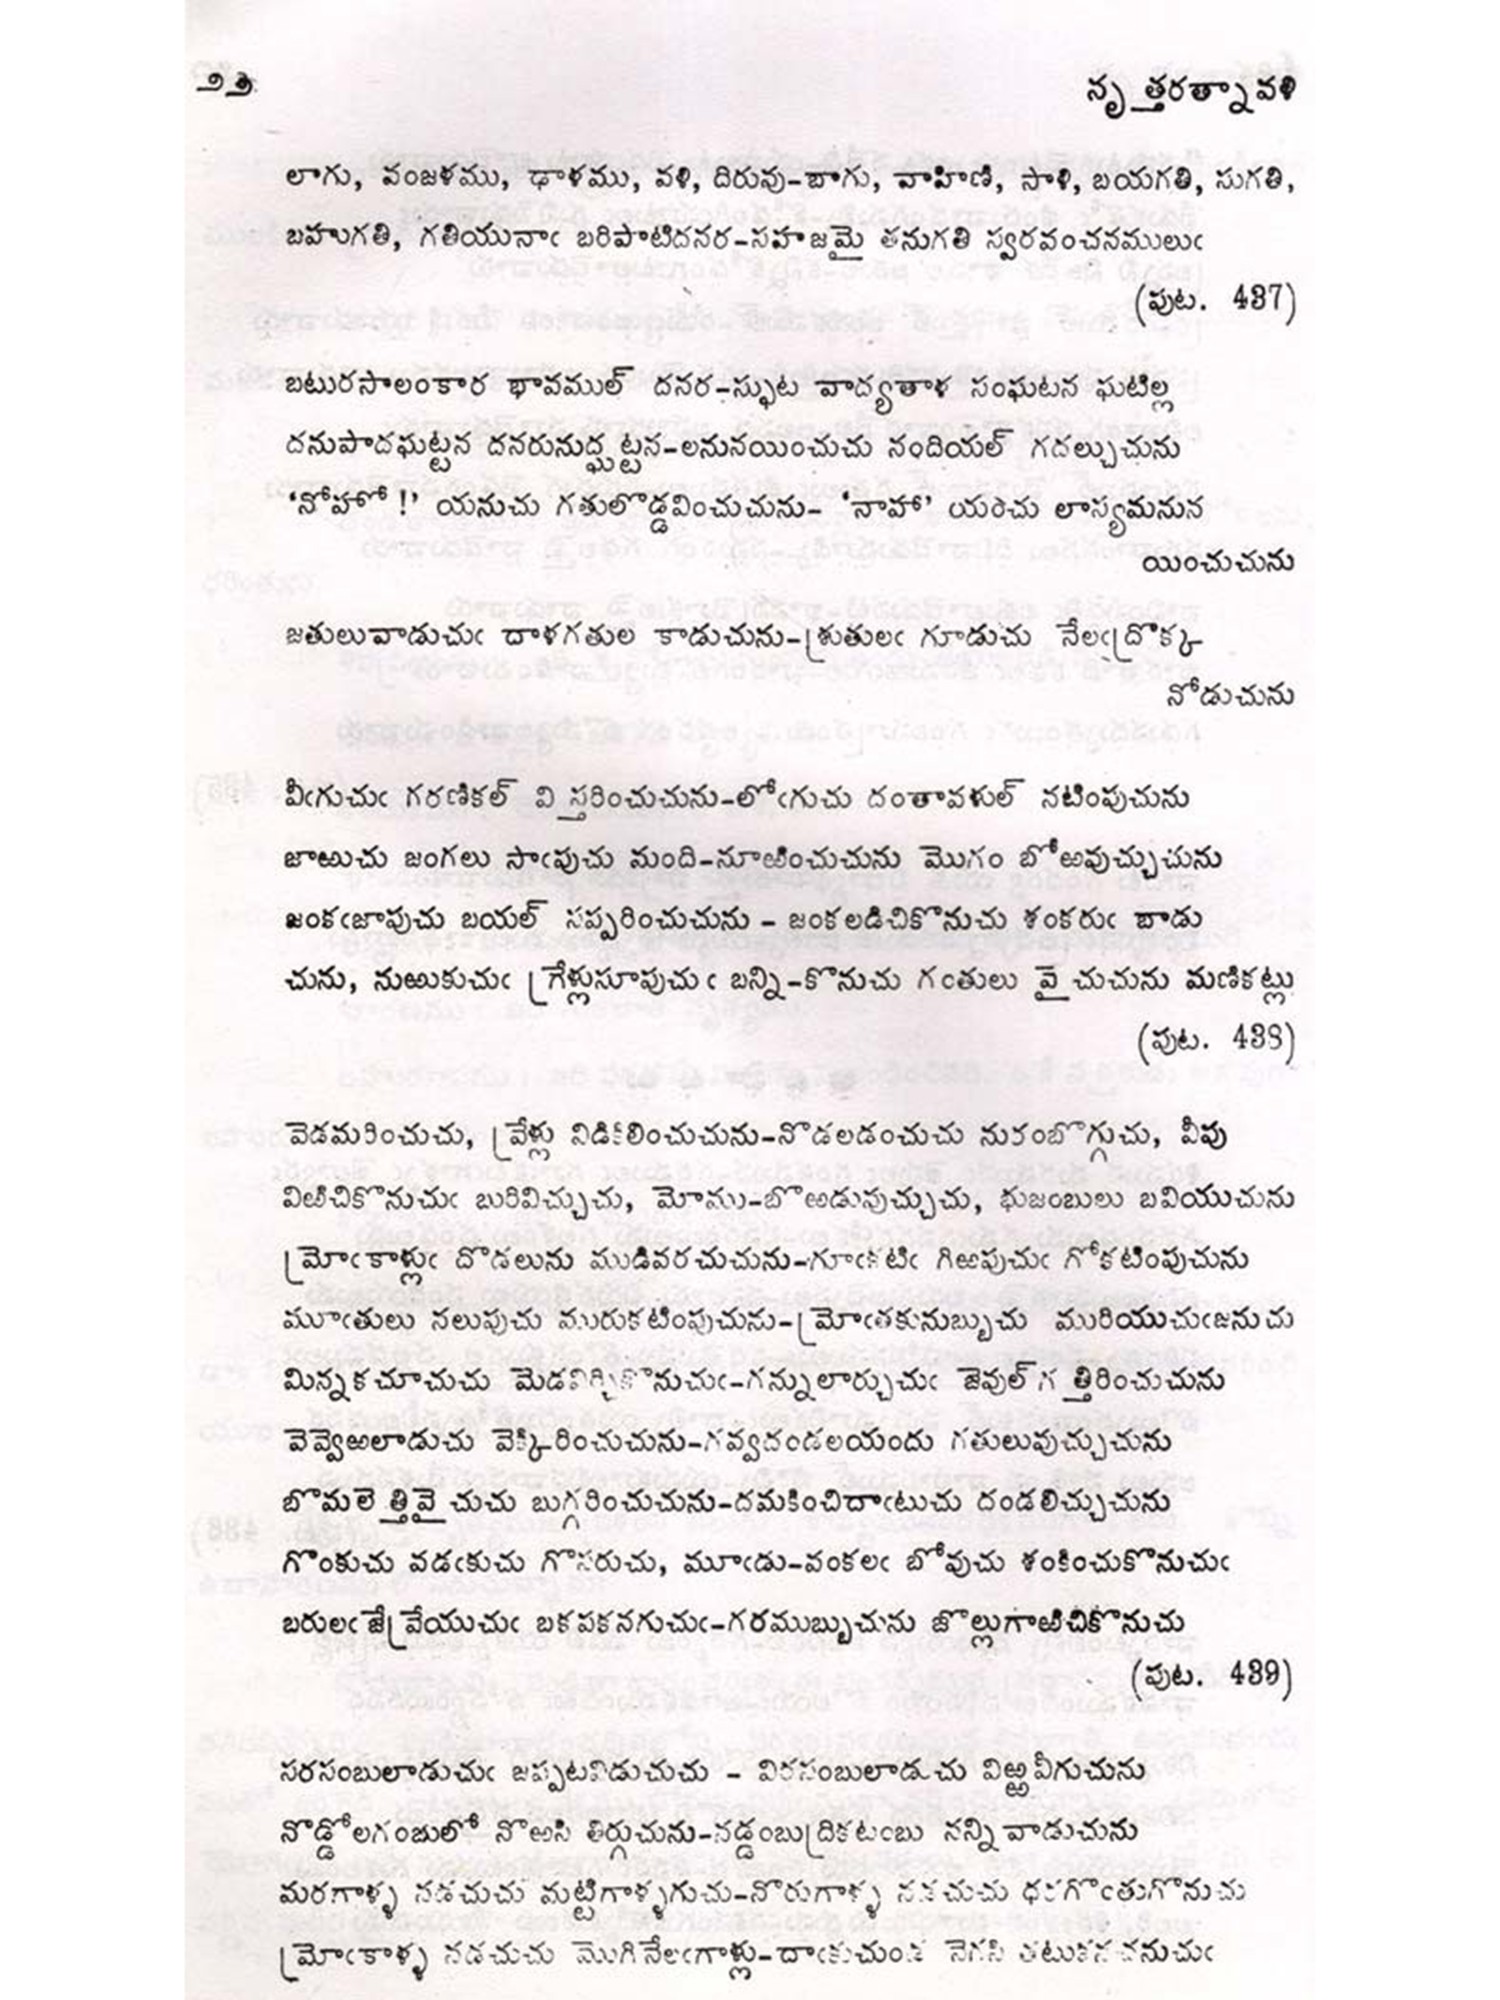 ౨౨ నృత్తరత్నావళి
లాగు, వంజళము, ఢాళము, వళి, దిరువు-బాగు, వాహిణి, సాళి, బయగతి, సుగతి,
బహుగతి, గతియునాఁ బరిపాటిదనర-సహజమై తనుగతి స్వరవంచనములుఁ
(పుట. 437)
బటురసాలంకార భావముల్ దనర-స్ఫుట వాద్యతాళ సంఘటన ఘటిల్ల
దనుపాదఘట్టన దనరునుద్ఘట్టన-లనునయించుచు నందియల్ గదల్చుచును
‘నోహో !’ యనుచు గతులొడ్డవించుచును- ‘నాహా’ యనుచు లాస్యమనున
యించుచును
జతులువాడుచుఁ దాళగతుల కాడుచును-శ్రుతులఁ గూడుచు నేలఁద్రొక్క
నోడుచును
వీఁగుచుఁ గరణికల్ విస్తరించుచును-లోఁగుచు దంతావళుల్ నటింపుచును
జాఱుచు జంగలు సాఁపుచు మంది-నూఱించుచును మొగం బోఱవుచ్చుచును
జంకఁజాపుచు బయల్ సప్పరించుచును - జంకలడిచికొనుచు శంకరుఁ బాడు
చును, నుఱుకుచుఁ గ్రేళ్లుసూపుచుఁ బన్ని-కొనుచు గంతులు వైచుచును మణికట్లు
(పుట. 438)
వెడమరించుచు, వ్రేళ్లు నిడికిలించుచును-నొడలడంచుచు నురంబొగ్గుచు, వీపు
విఱిచికొనుచుఁ బురివిచ్చుచు, మోము-బొఱడుపుచ్చుచు, భుజంబులు బవియుచును
మ్రోఁకాళ్లుఁ దొడలును ముడివరచుచును-గూఁకటిఁ గిఱపుచుఁ గోకటింపుచును
మూఁతులు నలుపుచు మురుకటింపుచును-మ్రోఁతకునుబ్బుచు మురియుచుఁజనుచు
మిన్నకచూచుచు మెడవిర్చికొనుచుఁ-గన్నులార్చుచుఁ జెవుల్ గత్తిరించుచును
వెవ్వెఱలాడుచు వెక్కిరించుచును-గవ్వదండలయందు గతులువుచ్చుచును
బొమలెత్తివైచుచు బుగ్గరించుచును-దమకించిదాఁటుచు దండలిచ్చుచును
గొంకుచు వడఁకుచు గొసరుచు, మూఁడు-వంకలఁ బోవుచు శంకించుకొనుచుఁ
బరులఁజేవ్రేయుచుఁ బకపకనగుచుఁ-గరముబ్బుచును జొల్లుగాఱిచికొనుచు
(పుట. 439)
సరసంబులాడుచుఁ జప్పటవిడుచుచు - విరసంబులాడుచు విఱ్ఱవీగుచును
నొడ్డోలగంబులో నొఱసి తిర్గుచును-నడ్డంబుద్రికటంబు నన్ని వాడుచును
మరగాళ్ళ నడచుచు మట్టిగాళ్ళగుచు-నొరుగాళ్ళ నడచుచు గొఁతుగొనుచు
మ్రోఁకాళ్ళ నడచుచు మొగినేలఁగాళ్లు-దాఁకుచుండ నెగసి